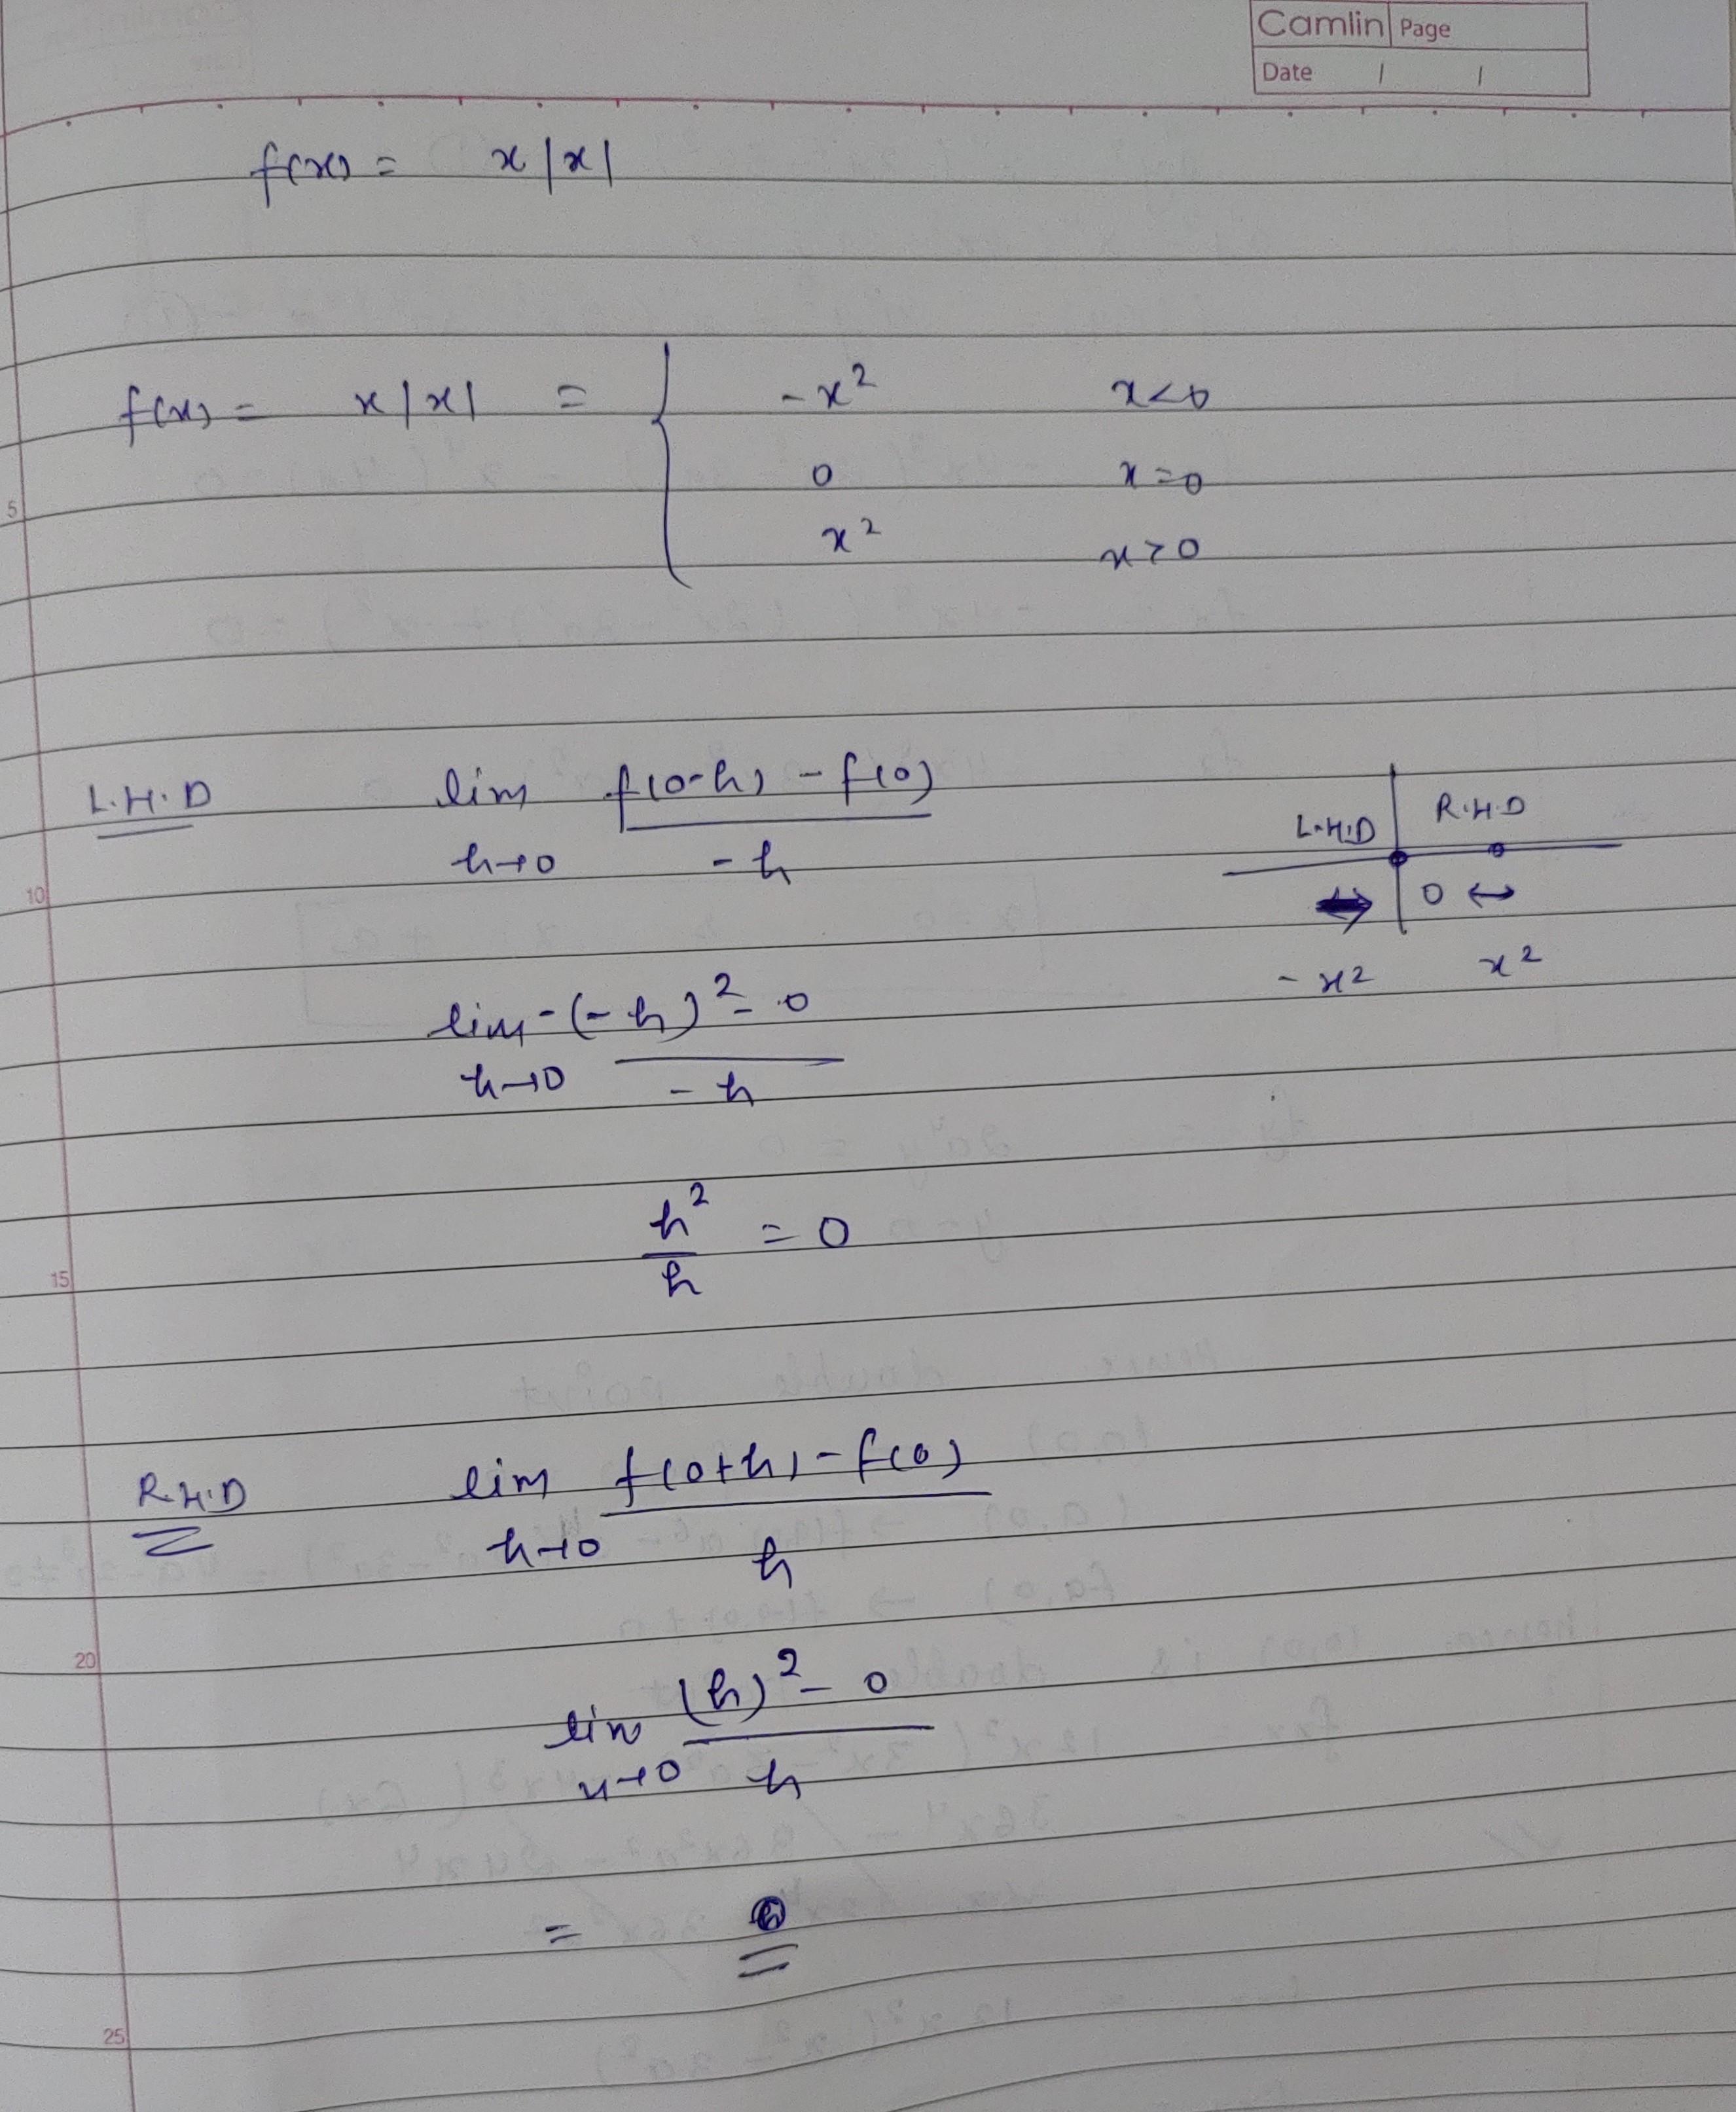 Camlin Page
Date / /
f(x) = x|x|
f(x) = x|x| = { -x² x<0
5
0 x=0
x² x>0
L.H.D lim f(0-h) - f(0)
h→0 -h
L.H.D R.H.D
10
0
-x² x²
lim -(-h)² - 0
h→0 -h
h² = 0
15
h
R.H.D lim f(0+h) - f(0)
h→0 h
20
lim (h)² - 0
x→0 h
=
25